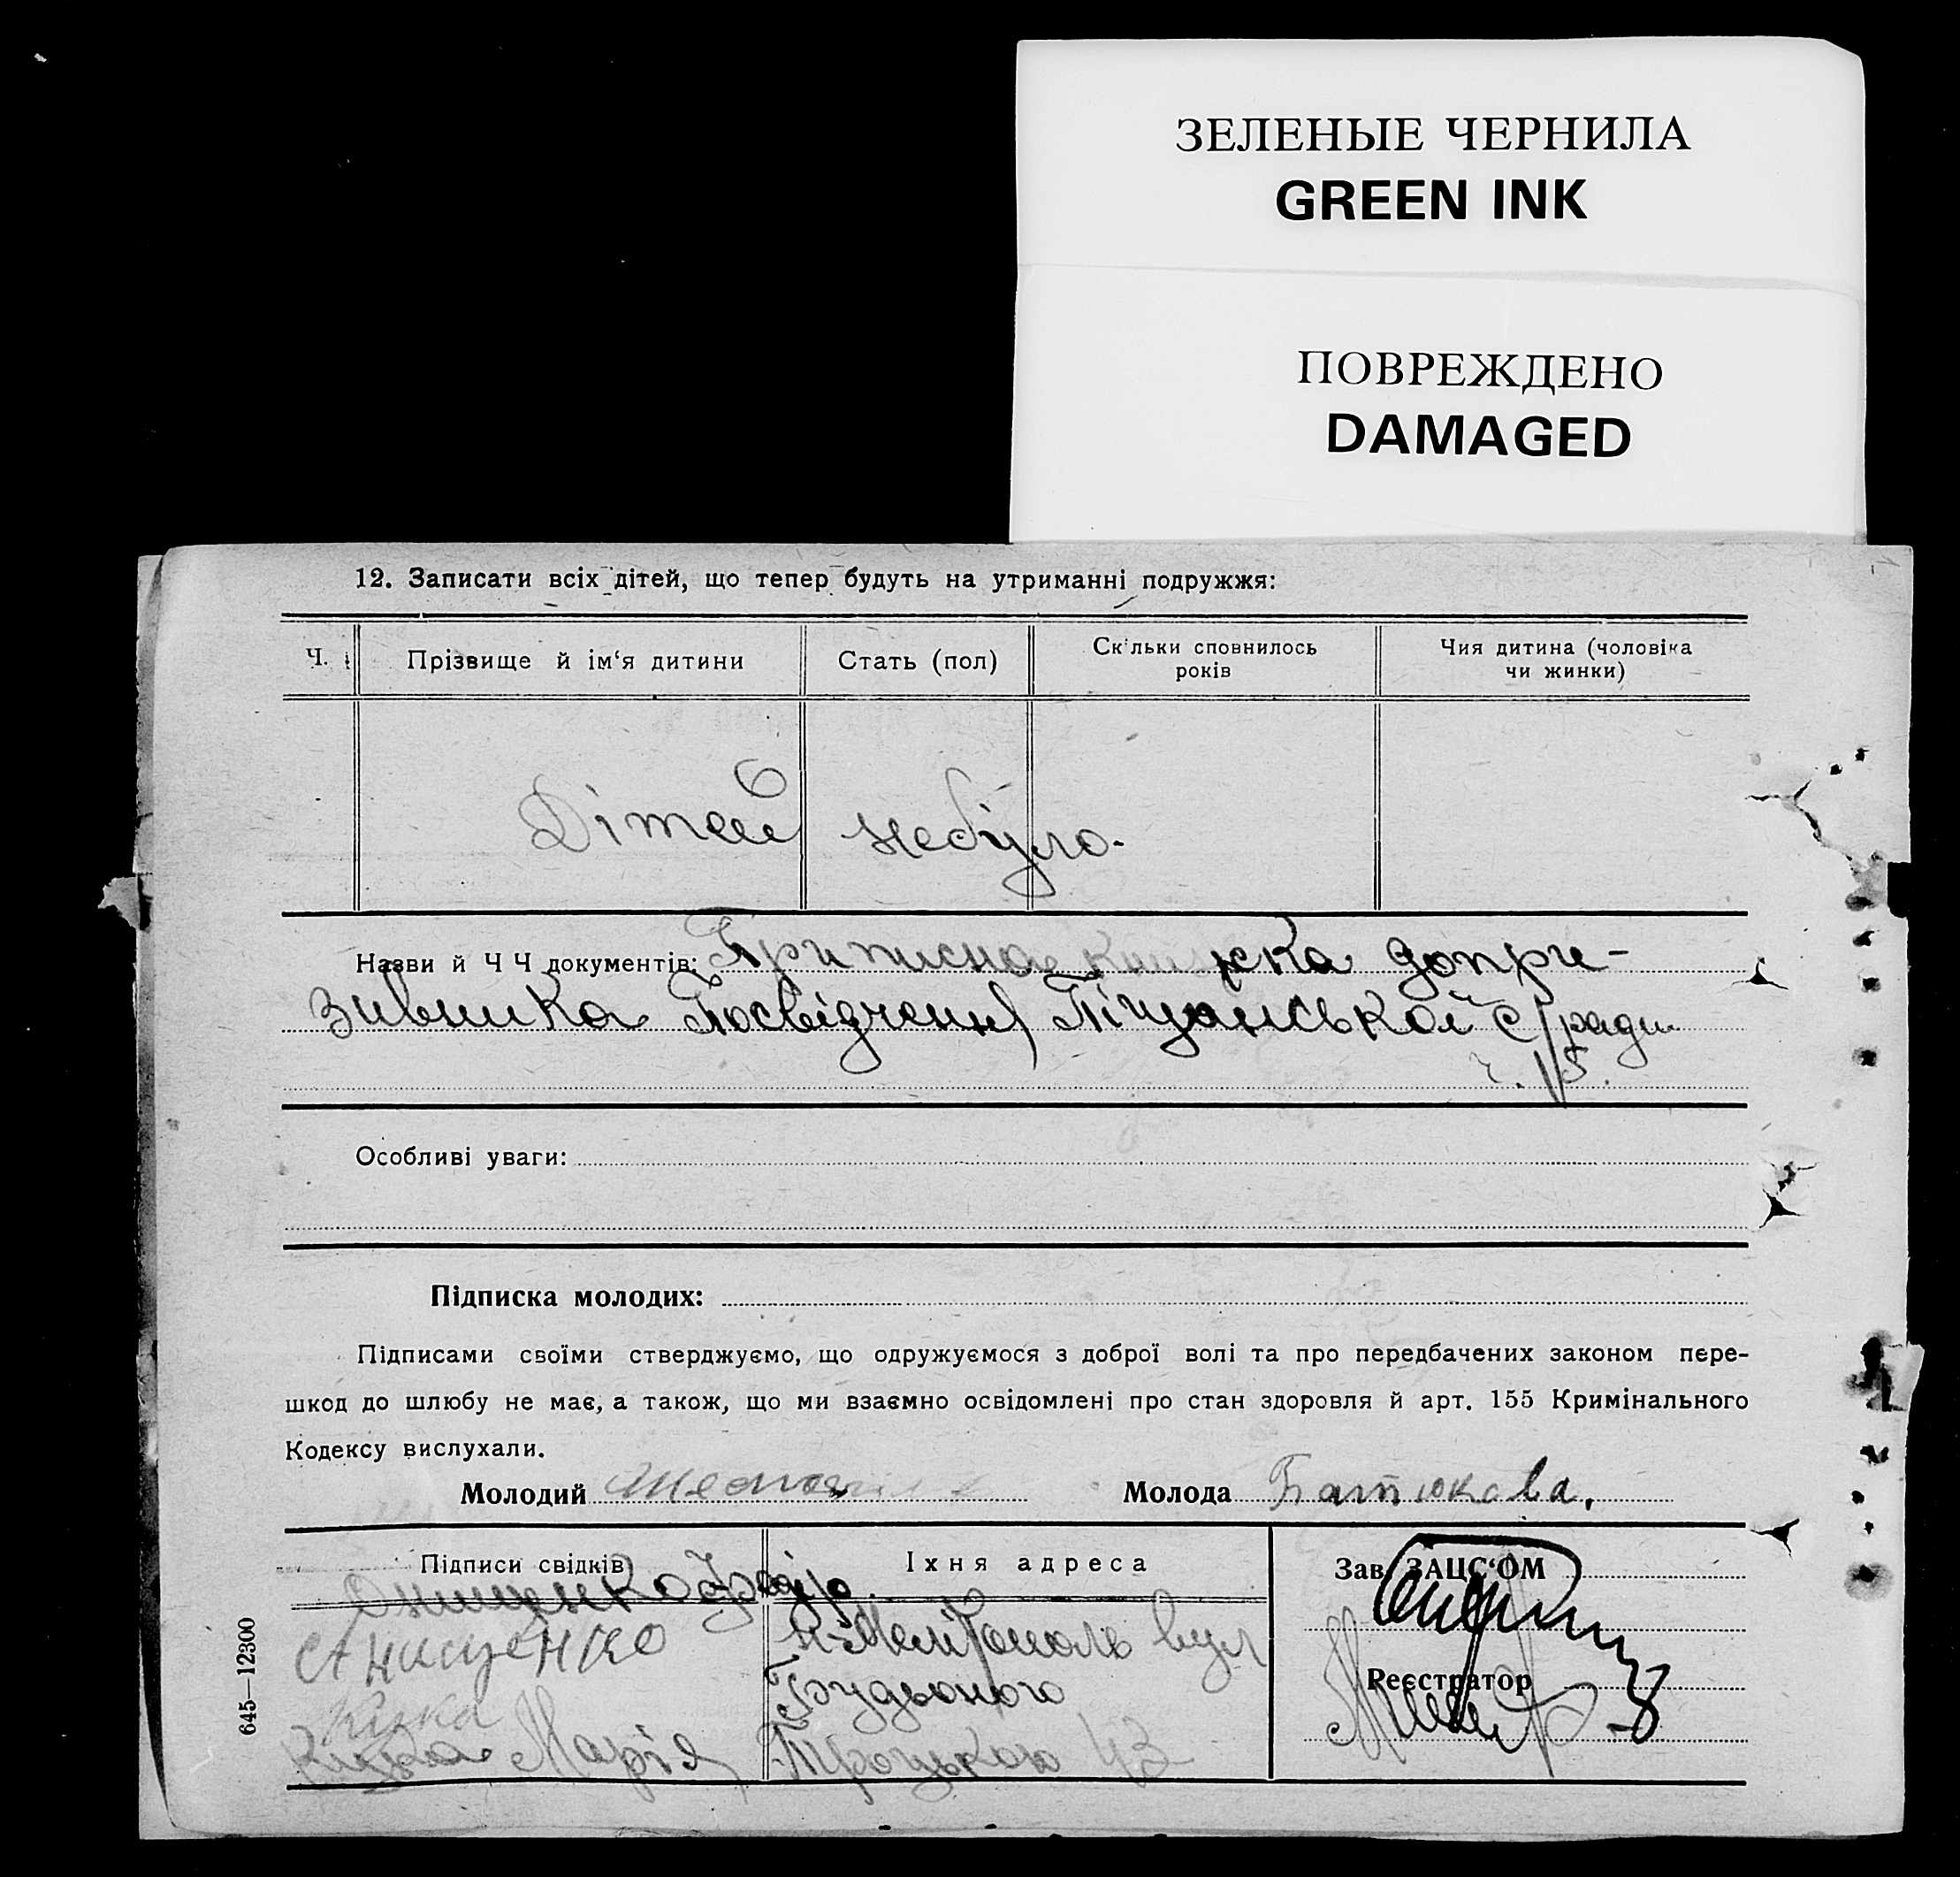 ЗЕЛЕНЫЕ ЧЕРНИЛА
GREEN INK
ПОВРЕЖДЕНО
DAMAGED
12. Записати всіх дітей, що тепер будуть на утриманні подружжя:
Ч. Прізвище й ім‘я дитини Стать (пол) Скільки сповнилось років Чия дитина (чоловіка чи жинки)
Дітей небуло.
Назви й Ч Ч документів: Приписна допри-
зивника Посвідчення с/ради
ч. 15.
Особливі уваги:
Підписка молодих:
Підписами своїми стверджуємо, що одружуємося з доброї волі та про передбачених законом пере-
шкод до шлюбу не має, а також, що ми взаємно освідомлені про стан здоровля й арт. 155 Кримінального
Кодексу вислухали.
Молодий Молода Батюкова,
Підписи свідків Їхня адреса Зав. ЗАЦС‘ОМ
Онищенко
Анищенко м-Мелітополь вул
Реєстратор
Кицка Будьоного
Марія Троцького 43
645—12300